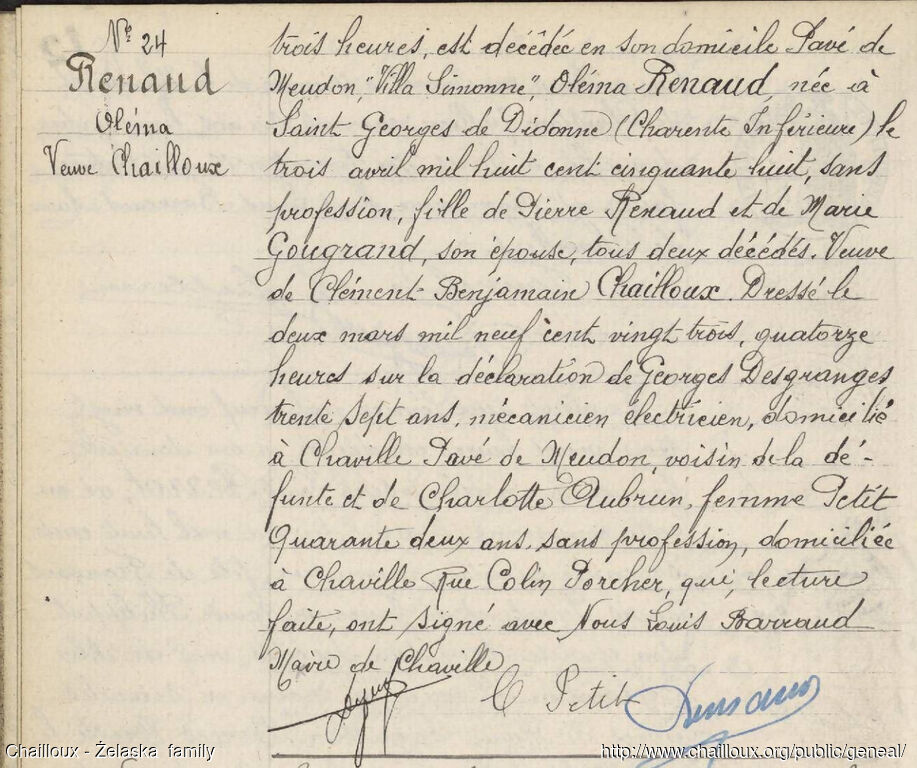 N° 24
Renaud
Oléma
Veuve Chailloux
trois heures, est décédée en son domicile Pavé de
Meudon, "Villa Simonne", Oléma Renaud née à
Saint Georges de Didonne (Charente Inférieure) le
trois avril mil huit cent cinquante huit, sans
profession, fille de Pierre Renaud et de Marie
Gougrand, son épouse, tous deux décédés. Veuve
de Clément Benjamain Chailloux. Dressé le
deux mars mil neuf cent vingt trois, quatorze
heures sur la déclaration de Georges Desgranges
trente sept ans, mécanicien électricien, domicilié
à Chaville Pavé de Meudon, voisin de la dé-
funte et de Charlotte Aubrun, femme Petit
Quarante deux ans, sans profession, domiciliée
à Chaville Rue Colin Porcher, qui, lecture
faite, ont signé avec Nous Louis Barraud
Maire de Chaville
C Petit
Chailloux - Żelaska family
http://www.chailloux.org/public/geneal/